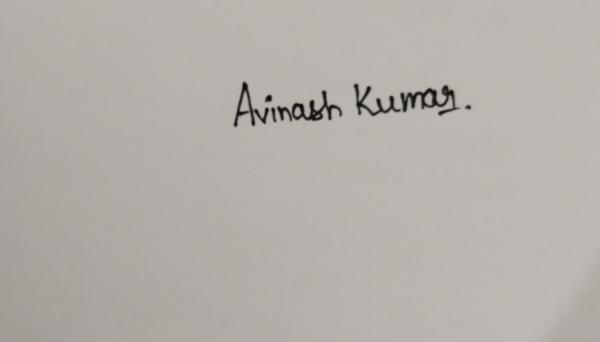 Avinash Kumar.